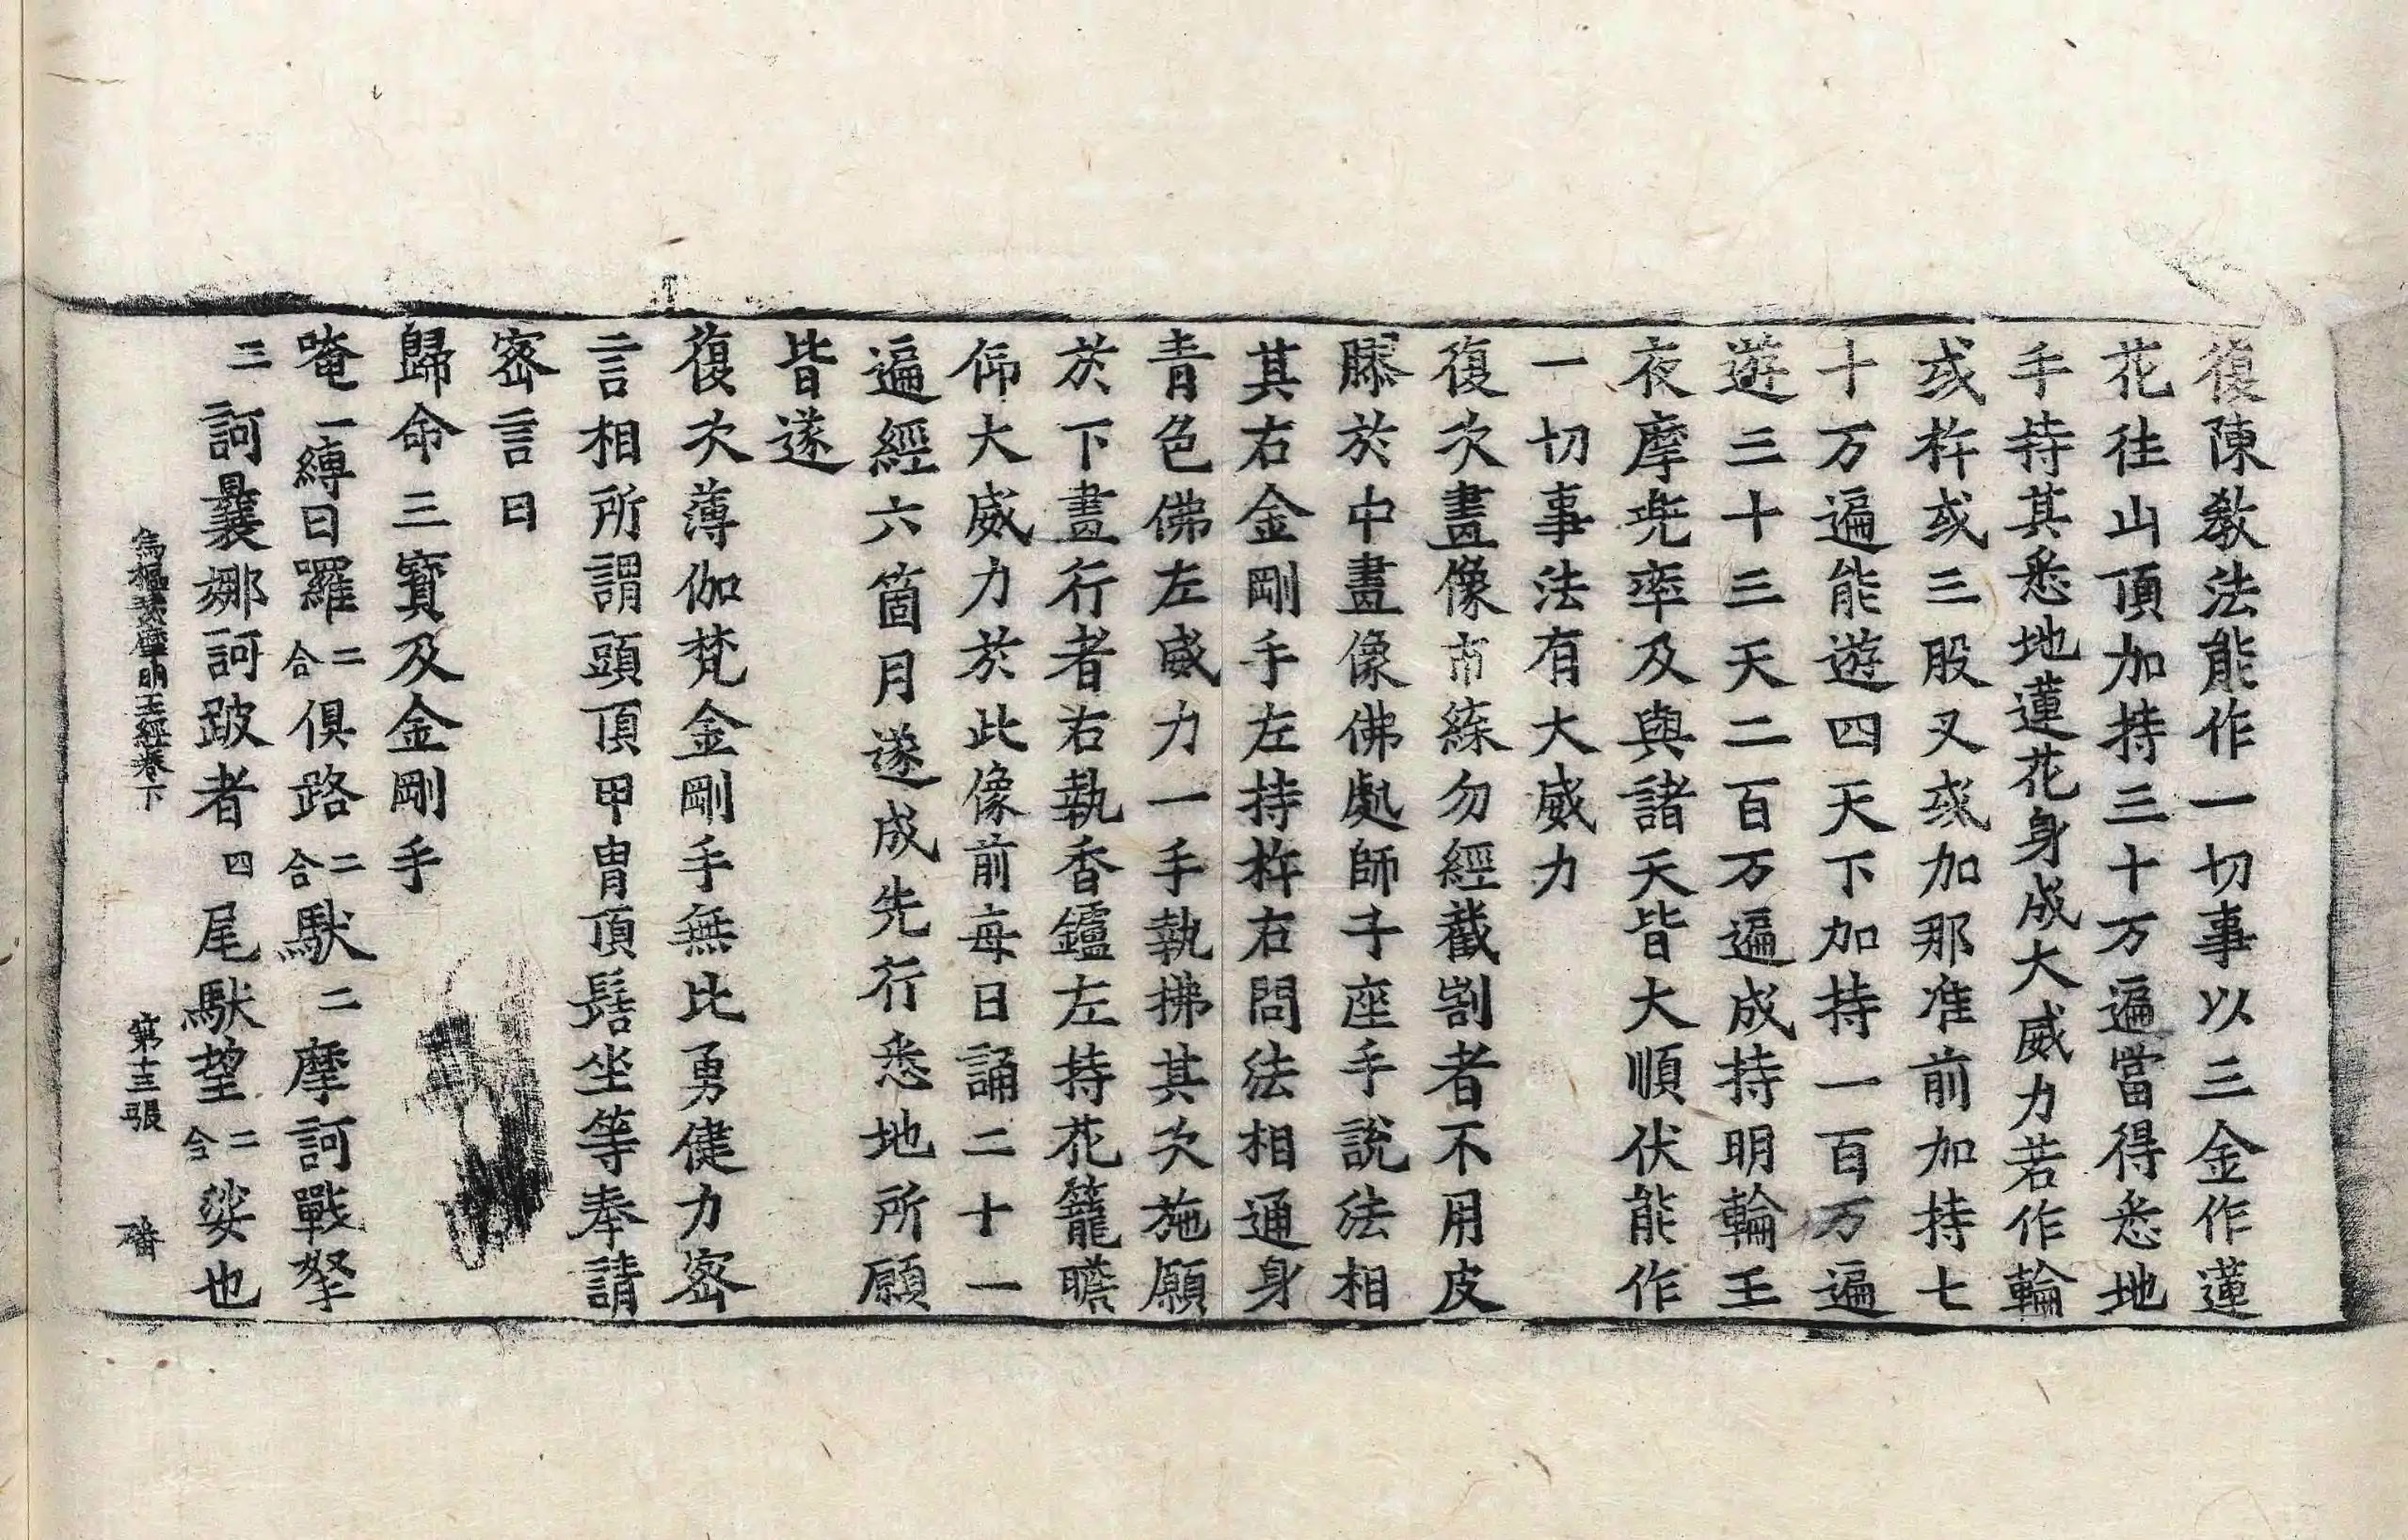 復陳教法能作一切事以三金作蓮
花往山頂加持三十万遍當得悉地
手持其悉地蓮花身成大威力若作輪
或杵或三股叉或加那准前加持七
十万遍能遊四天下加持一百万遍
遊三十三天二百万遍成持明輪王
夜摩兠率及與諸天皆大順伏能作
一切事法有大威力
復次畫像市練勿經截割者不用皮
膠於中畫像佛處師子座手說法相
其右金剛手左持杵右問法相通身
青色佛左威力一手執拂其次施願
於下畫行者右執香鑪左持花籠瞻
仰大威力於此像前每日誦二十一
遍經六箇月遂成先行悉地所願
皆遂
復次薄伽梵金剛手無比勇健力密
言相所謂頭頂甲冑頂髻坐等奉請
密言曰
歸命三寶及金剛手
唵一縛日羅二合俱路二合馱二摩訶戰拏
三訶曩娜訶跛者四尾馱望二合娑也
烏樞瑟摩明王經卷下 第十三張 磻